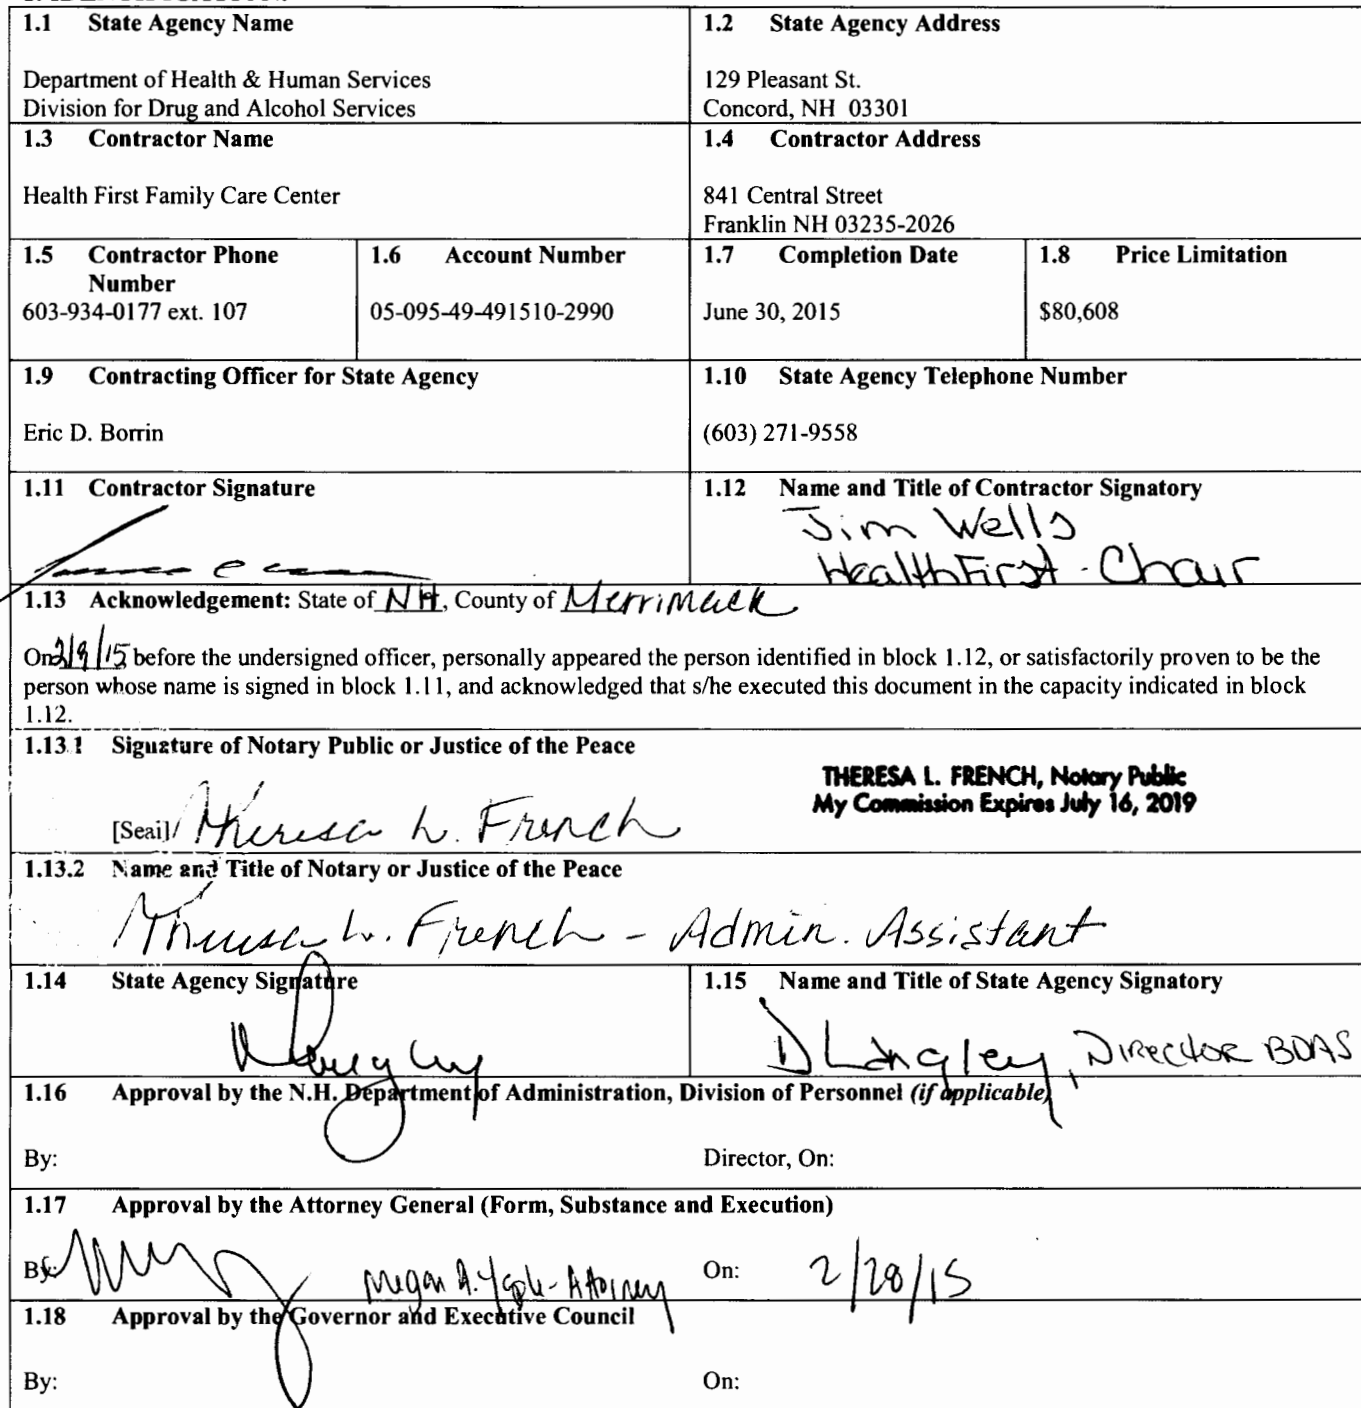 1.1 State Agency Name
Department of Health & Human Services
Division for Drug and Alcohol Services
1.2 State Agency Address
129 Pleasant St.
Concord, NH 03301
1.3 Contractor Name
Health First Family Care Center
1.4 Contractor Address
841 Central Street
Franklin NH 03235-2026
1.5 Contractor Phone
Number
603-934-0177 ext. 107
1.6 Account Number
05-095-49-491510-2990
1.7 Completion Date
June 30, 2015
1.8 Price Limitation
$80,608
1.9 Contracting Officer for State Agency
Eric D. Borrin
1.10 State Agency Telephone Number
(603) 271-9558
1.11 Contractor Signature
1.12 Name and Title of Contractor Signatory
Jim Wells
HealthFirst - Chair
1.13 Acknowledgement: State of NH, County of Merrimack
On 2/9/15 before the undersigned officer, personally appeared the person identified in block 1.12, or satisfactorily proven to be the
person whose name is signed in block 1.11, and acknowledged that s/he executed this document in the capacity indicated in block
1.12.
1.13.1 Signature of Notary Public or Justice of the Peace
THERESA L. FRENCH, Notary Public
My Commission Expires July 16, 2019
[Seal] Theresa L. French
1.13.2 Name and Title of Notary or Justice of the Peace
Theresa L. French - Admin. Assistant
1.14 State Agency Signature
1.15 Name and Title of State Agency Signatory
D Langley, Director BDAS
1.16 Approval by the N.H. Department of Administration, Division of Personnel (if applicable)
By:
Director, On:
1.17 Approval by the Attorney General (Form, Substance and Execution)
By:
Megan A. - Attorney
On: 2/28/15
1.18 Approval by the Governor and Executive Council
By:
On: